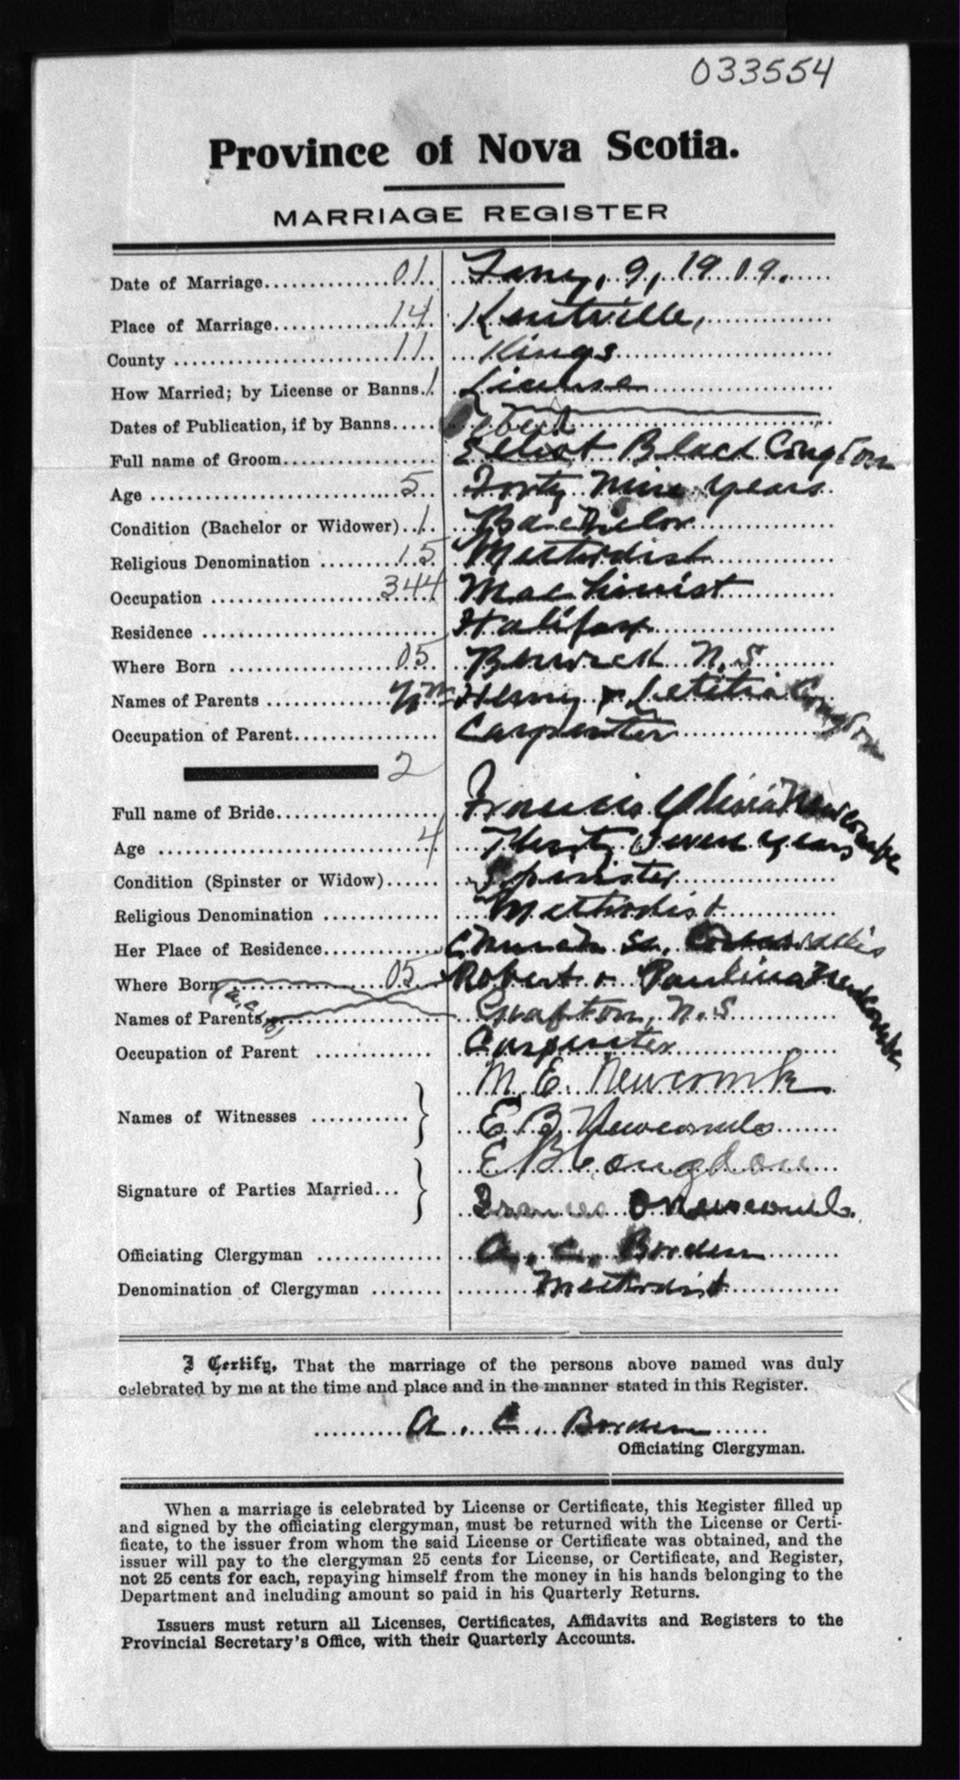 033554
Province of Nova Scotia.
MARRIAGE REGISTER
Date of Marriage 01 Jany. 9, 1909.
Place of Marriage 14 Kentville,
County 11 Kings
How Married; by License or Banns 1 License
Dates of Publication, if by Banns
Full name of Groom Elliot Black Congdon
Age 5 Forty Nine years
Condition (Bachelor or Widower) 1 Bachelor
Religious Denomination 15 Methodist
Occupation 344 Machinist
Residence Halifax
Where Born 05 Berwick N.S
Names of Parents Henry & Letitia Congdon
Occupation of Parent Carpenter
2
Full name of Bride Francis Newcombe
Age 4 Thirty Seven years
Condition (Spinster or Widow) Spinster
Religious Denomination Methodist
Her Place of Residence Church St. Cornwallis
Where Born 05 Robert & Paulina Newcombe
Names of Parents Grafton, N.S
Occupation of Parent Carpenter
M. E. Newcomb
Names of Witnesses
E B Newcombe
E B Congdon
Signature of Parties Married
Frances O Newcomb.
Officiating Clergyman A. C. Borden
Denomination of Clergyman Methodist
I Certify, That the marriage of the persons above named was duly
celebrated by me at the time and place and in the manner stated in this Register.
A. C. Borden
Officiating Clergyman.
When a marriage is celebrated by License or Certificate, this Register filled up
and signed by the officiating clergyman, must be returned with the License or Certi-
ficate, to the issuer from whom the said License or Certificate was obtained, and the
issuer will pay to the clergyman 25 cents for License, or Certificate, and Register,
not 25 cents for each, repaying himself from the money in his hands belonging to the
Department and including amount so paid in his Quarterly Returns.
Issuers must return all Licenses, Certificates, Affidavits and Registers to the
Provincial Secretary's Office, with their Quarterly Accounts.